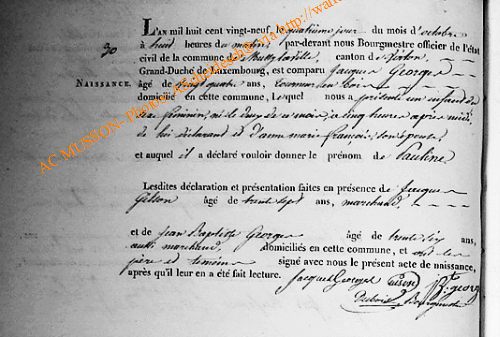 30
Naissance.
L'an mil huit cent vingt-neuf, le quatrième jour du mois d'octobre
à huit heures du matin par-derant nous Bourgmestre officier de l'état
civil de la commune de canton de Virton
Grand-Duché de Luxembourg, est comparu Jacques Georges
âgé de quatre ans,
domicilié en cette commune, Lequel nous a présenté un enfant du
sexe féminin, né le deux de ce mois, a cinq heures après midi,
de lui déclarant et d'anne marie françois, son épouse,
et auquel il a déclaré vouloir donner le prénom de Pauline
Lesdites déclaration et présentation faites en présence de Jacques
Gilson âgé de trente sept ans, marchand,
et de Jean Baptiste Georges âgé de trente six ans
aussi marchand, domiciliés en cette commune, et ont les
père et témoins signé avec nous le présent acte de naissance,
après qu'il leur en a été fait lecture.
Jacques Georges Gilson J Bte georg
Bourgmestre
AC MUSSON-Photos http://www